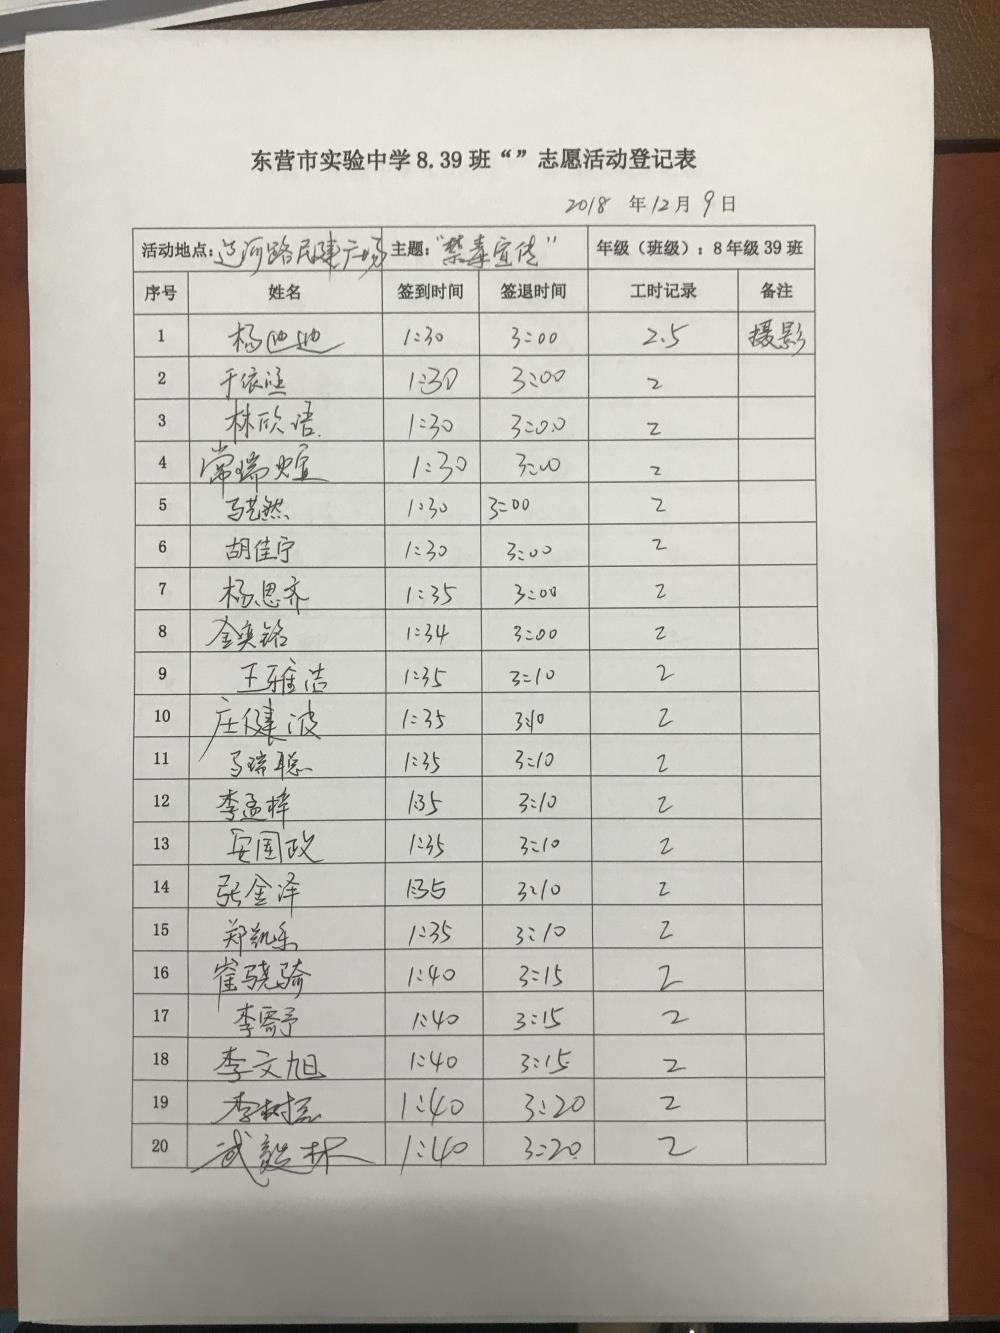 东营市实验中学8.39班“”志愿活动登记表
2018 年12月9日
活动地点: 河路民建广场 主题:“禁毒宣传” 年级（班级）: 8年级39班
序号 姓名 签到时间 签退时间 工时记录 备注
1 杨 1:30 3:00 2.5 摄影
2 于依涵 1:30 3:00 2
3 林欣语 1:30 3:00 2
4 常瑞煊 1:30 3:00 2
5 马艺然 1:30 3:00 2
6 胡佳宁 1:30 3:00 2
7 杨恩齐 1:35 3:00 2
8 金奕铭 1:34 3:00 2
9 王雅洁 1:35 3:10 2
10 庄健波 1:35 3:10 2
11 马瑞聪 1:35 3:10 2
12 李孟梓 1:35 3:10 2
13 安国政 1:35 3:10 2
14 张金泽 1:35 3:10 2
15 郑凯乐 1:35 3:10 2
16 崔骁骑 1:40 3:15 2
17 李霈予 1:40 3:15 2
18 李文旭 1:40 3:15 2
19 李树 1:40 3:20 2
20 武毅林 1:40 3:20 2